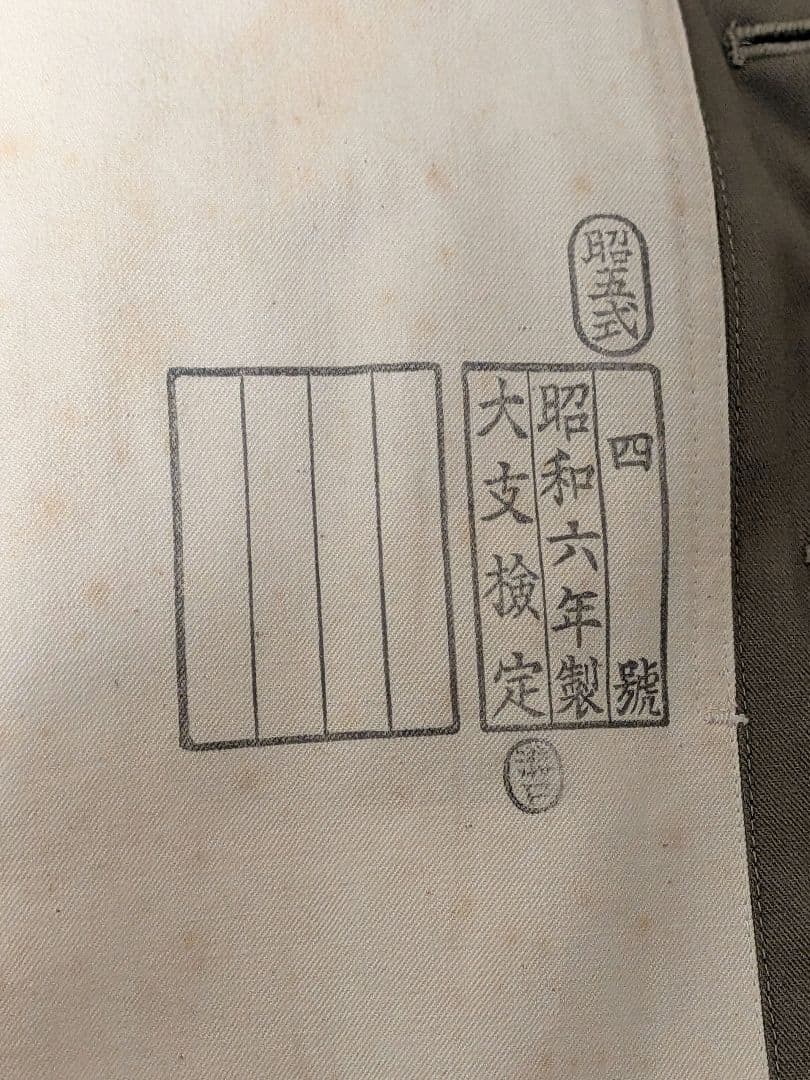 昭五式
四號
昭和六年製
大支検定